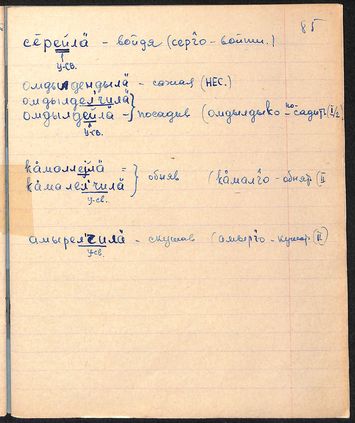 85
се̄рейла̄ - войдя (серго-войти.)
у-св.
омдындендыла̄ - сажая (НЕС.)
омдылделчила̄
омдылдейла̄ - } посадив (омдылдыко-посадить
у-св.
ка̊моллейла̄ =
ка̊малелчила̄ } обняв (ка̊малго-обнять II
у-св.
амырелчила̄ - скушав (амырго-кушать II)
у-св.